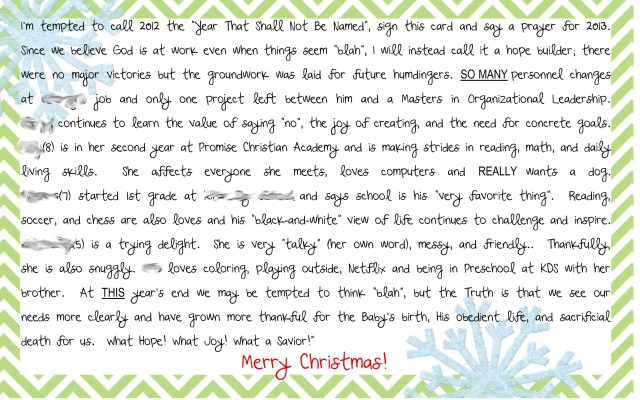 I'm tempted to call 2012 the "Year That Shall Not Be Named", sign this card and say a prayer for 2013.
Since we believe God is at work even when things seem "blah", I will instead call it a hope builder; there
were no major victories but the groundwork was laid for future humdingers. SO MANY personnel changes
at job and only one project left between him and a Masters in Organizational Leadership.
continues to learn the value of saying "no", the joy of creating, and the need for concrete goals.
(8) is in her second year at Promise Christian Academy and is making strides in reading, math, and daily
living skills. She affects everyone she meets, loves computers and REALLY wants a dog.
(7) started 1st grade at and says school is his "very favorite thing". Reading,
soccer, and chess are also loves and his "black-and-white" view of life continues to challenge and inspire.
5) is a trying delight. She is very "talky" (her own word), messy, and friendly.. Thankfully,
she is also snuggly. loves coloring, playing outside, Netflix and being in Preschool at KDS with her
brother. At THIS year's end we may be tempted to think "blah", but the Truth is that we see our
needs more clearly and have grown more thankful for the Baby's birth, His obedient life, and sacrificial
death for us. What Hope! What Joy! What a Savior!"
Merry Christmas!